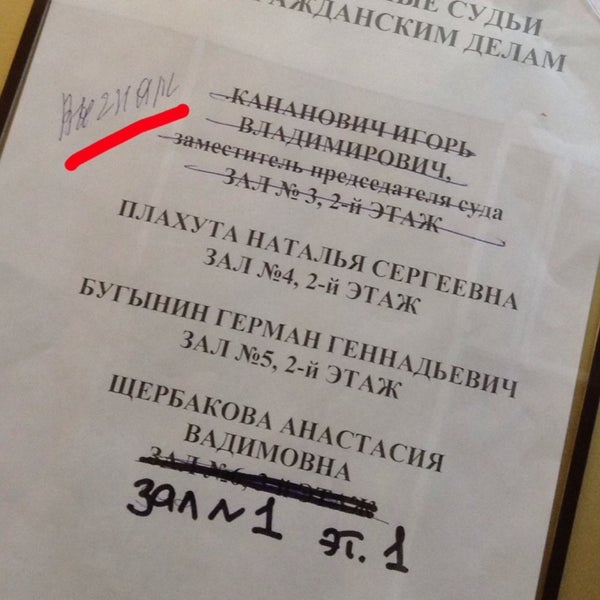 СУДЬИ
ГРАЖДАНСКИМ ДЕЛАМ
Выгнали
КАНАНОВИЧ ИГОРЬ
ВЛАДИМИРОВИЧ,
заместитель председателя суда
ЗАЛ № 3, 2-й ЭТАЖ
ПЛАХУТА НАТАЛЬЯ СЕРГЕЕВНА
ЗАЛ №4, 2-й ЭТАЖ
БУГЫНИН ГЕРМАН ГЕННАДЬЕВИЧ
ЗАЛ №5, 2-й ЭТАЖ
ЩЕРБАКОВА АНАСТАСИЯ
ВАДИМОВНА
ЗАЛ №6, 2-й ЭТАЖ
зал N 1 эт. 1